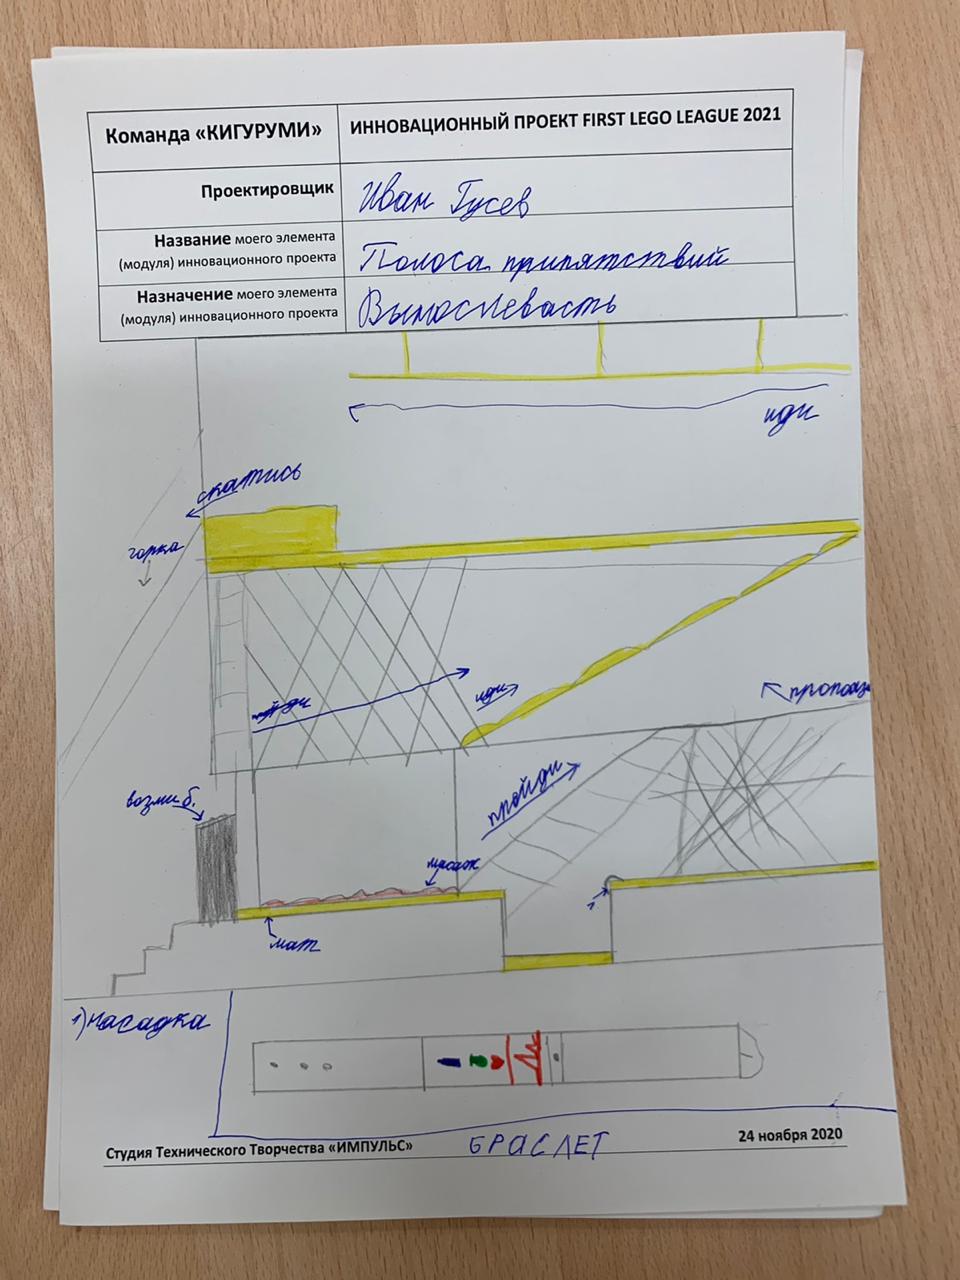 Команда «КИГУРУМИ»
ИННОВАЦИОННЫЙ ПРОЕКТ FIRST LEGO LEAGUE 2021
Проектировщик
Иван Гусев
Название моего элемента
(модуля) инновационного проекта
Полоса припятствий
Назначение моего элемента
(модуля) инновационного проекта
Выносливасть
иди
скатись
горка
иди
пропольз
пройди
возми б.
масаж
1
мат
1) насадка
БРАСЛЕТ
Студия Технического Творчества «ИМПУЛЬС»
24 ноября 2020